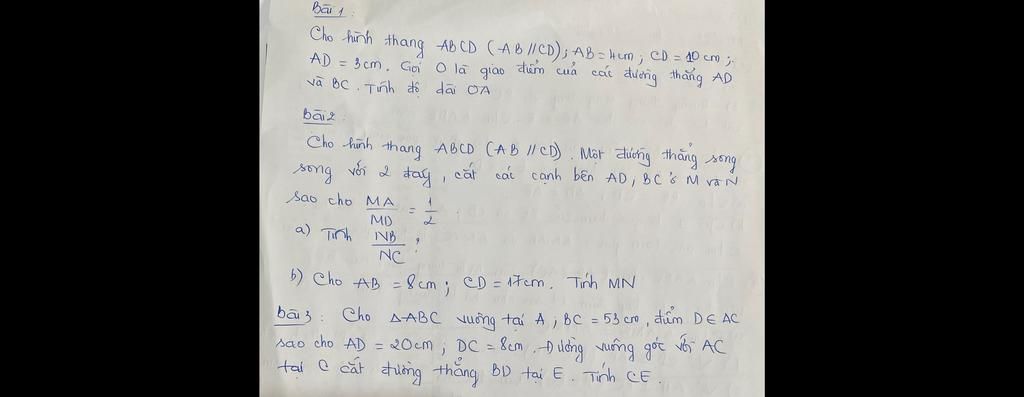 Bài 1:
Cho hình thang ABCD (AB // CD); AB = 4cm; CD = 10 cm;
AD = 3cm. Gọi O là giao điểm của các đường thẳng AD
và BC. Tính độ dài OA
Bài 2:
Cho hình thang ABCD (AB // CD). Một đường thẳng song
song với 2 đáy, cắt các cạnh bên AD, BC ở M và N
sao cho MA/MD = 1/2
a) Tính NB/NC?
b) Cho AB = 8cm; CD = 17cm. Tính MN
Bài 3: Cho ΔABC vuông tại A; BC = 53 cm, điểm D ∈ AC
sao cho AD = 20cm; DC = 8cm. Đường vuông góc với AC
tại C cắt đường thẳng BD tại E. Tính CE.